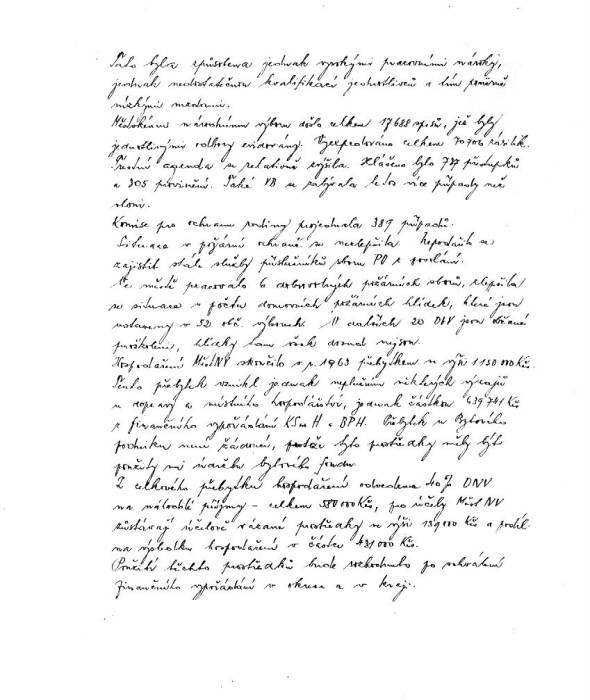 Tato byla způsobena jednak vysokými pracovními nároky,
jednak nedostatečnou kvalifikací jednotlivců a tím poměrně
nízkými mzdami.
Městskému národnímu výboru došlo celkem 17688 spisů, jež byly
jednotlivými odbory evidovány. Vyexpedováno celkem 70706 zásilek.
Trestní agenda se relativně zvýšila. Hlášeno bylo 737 přestupků
a 305 provinění. Také VB se zabývala letos více případy než
vloni.
Komise pro ochranu rodiny projednala 389 případů.
Situace v požární ochraně se nezlepšila. Nepodařilo se
zajistit stálé služby příslušníků sboru PO z povolání.
Ve městě pracovalo 6 dobrovolných požárních sborů, zlepšila
se situace v počtu domovních požárních hlídek, které jsou
ustaveny v 52 obč. výborech. V dalších 20 OBV jsou občané
proškoleni, hlídky tam však dosud nejsou.
Hospodaření MěstNV skončilo v r. 1963 přebytkem ve výši 1150 000 Kčs.
Tento přebytek vznikl jednak neplněním některých výdajů
u dopravy a místního hospodářství, jednak částkou 639 741 Kčs
z finančního vypořádání KSmH a BPH. Přebytek u Bytového
podniku není žádoucí, protože tyto prostředky měly být
použity na údržbu bytového fondu.
Z celkového přebytku hospodaření odvedeno 40% ONV
na nálodilé příjmy - celkem 580 000 Kčs, pro účely MěstNV
zůstávají účelově vázané prostředky ve výši 139 000 Kčs a podíl
na výsledku hospodaření v částce 431 000 Kčs.
Použití těchto prostředků bude rozhodnuto po schválení
finančního vypořádání v okrese a v kraji.